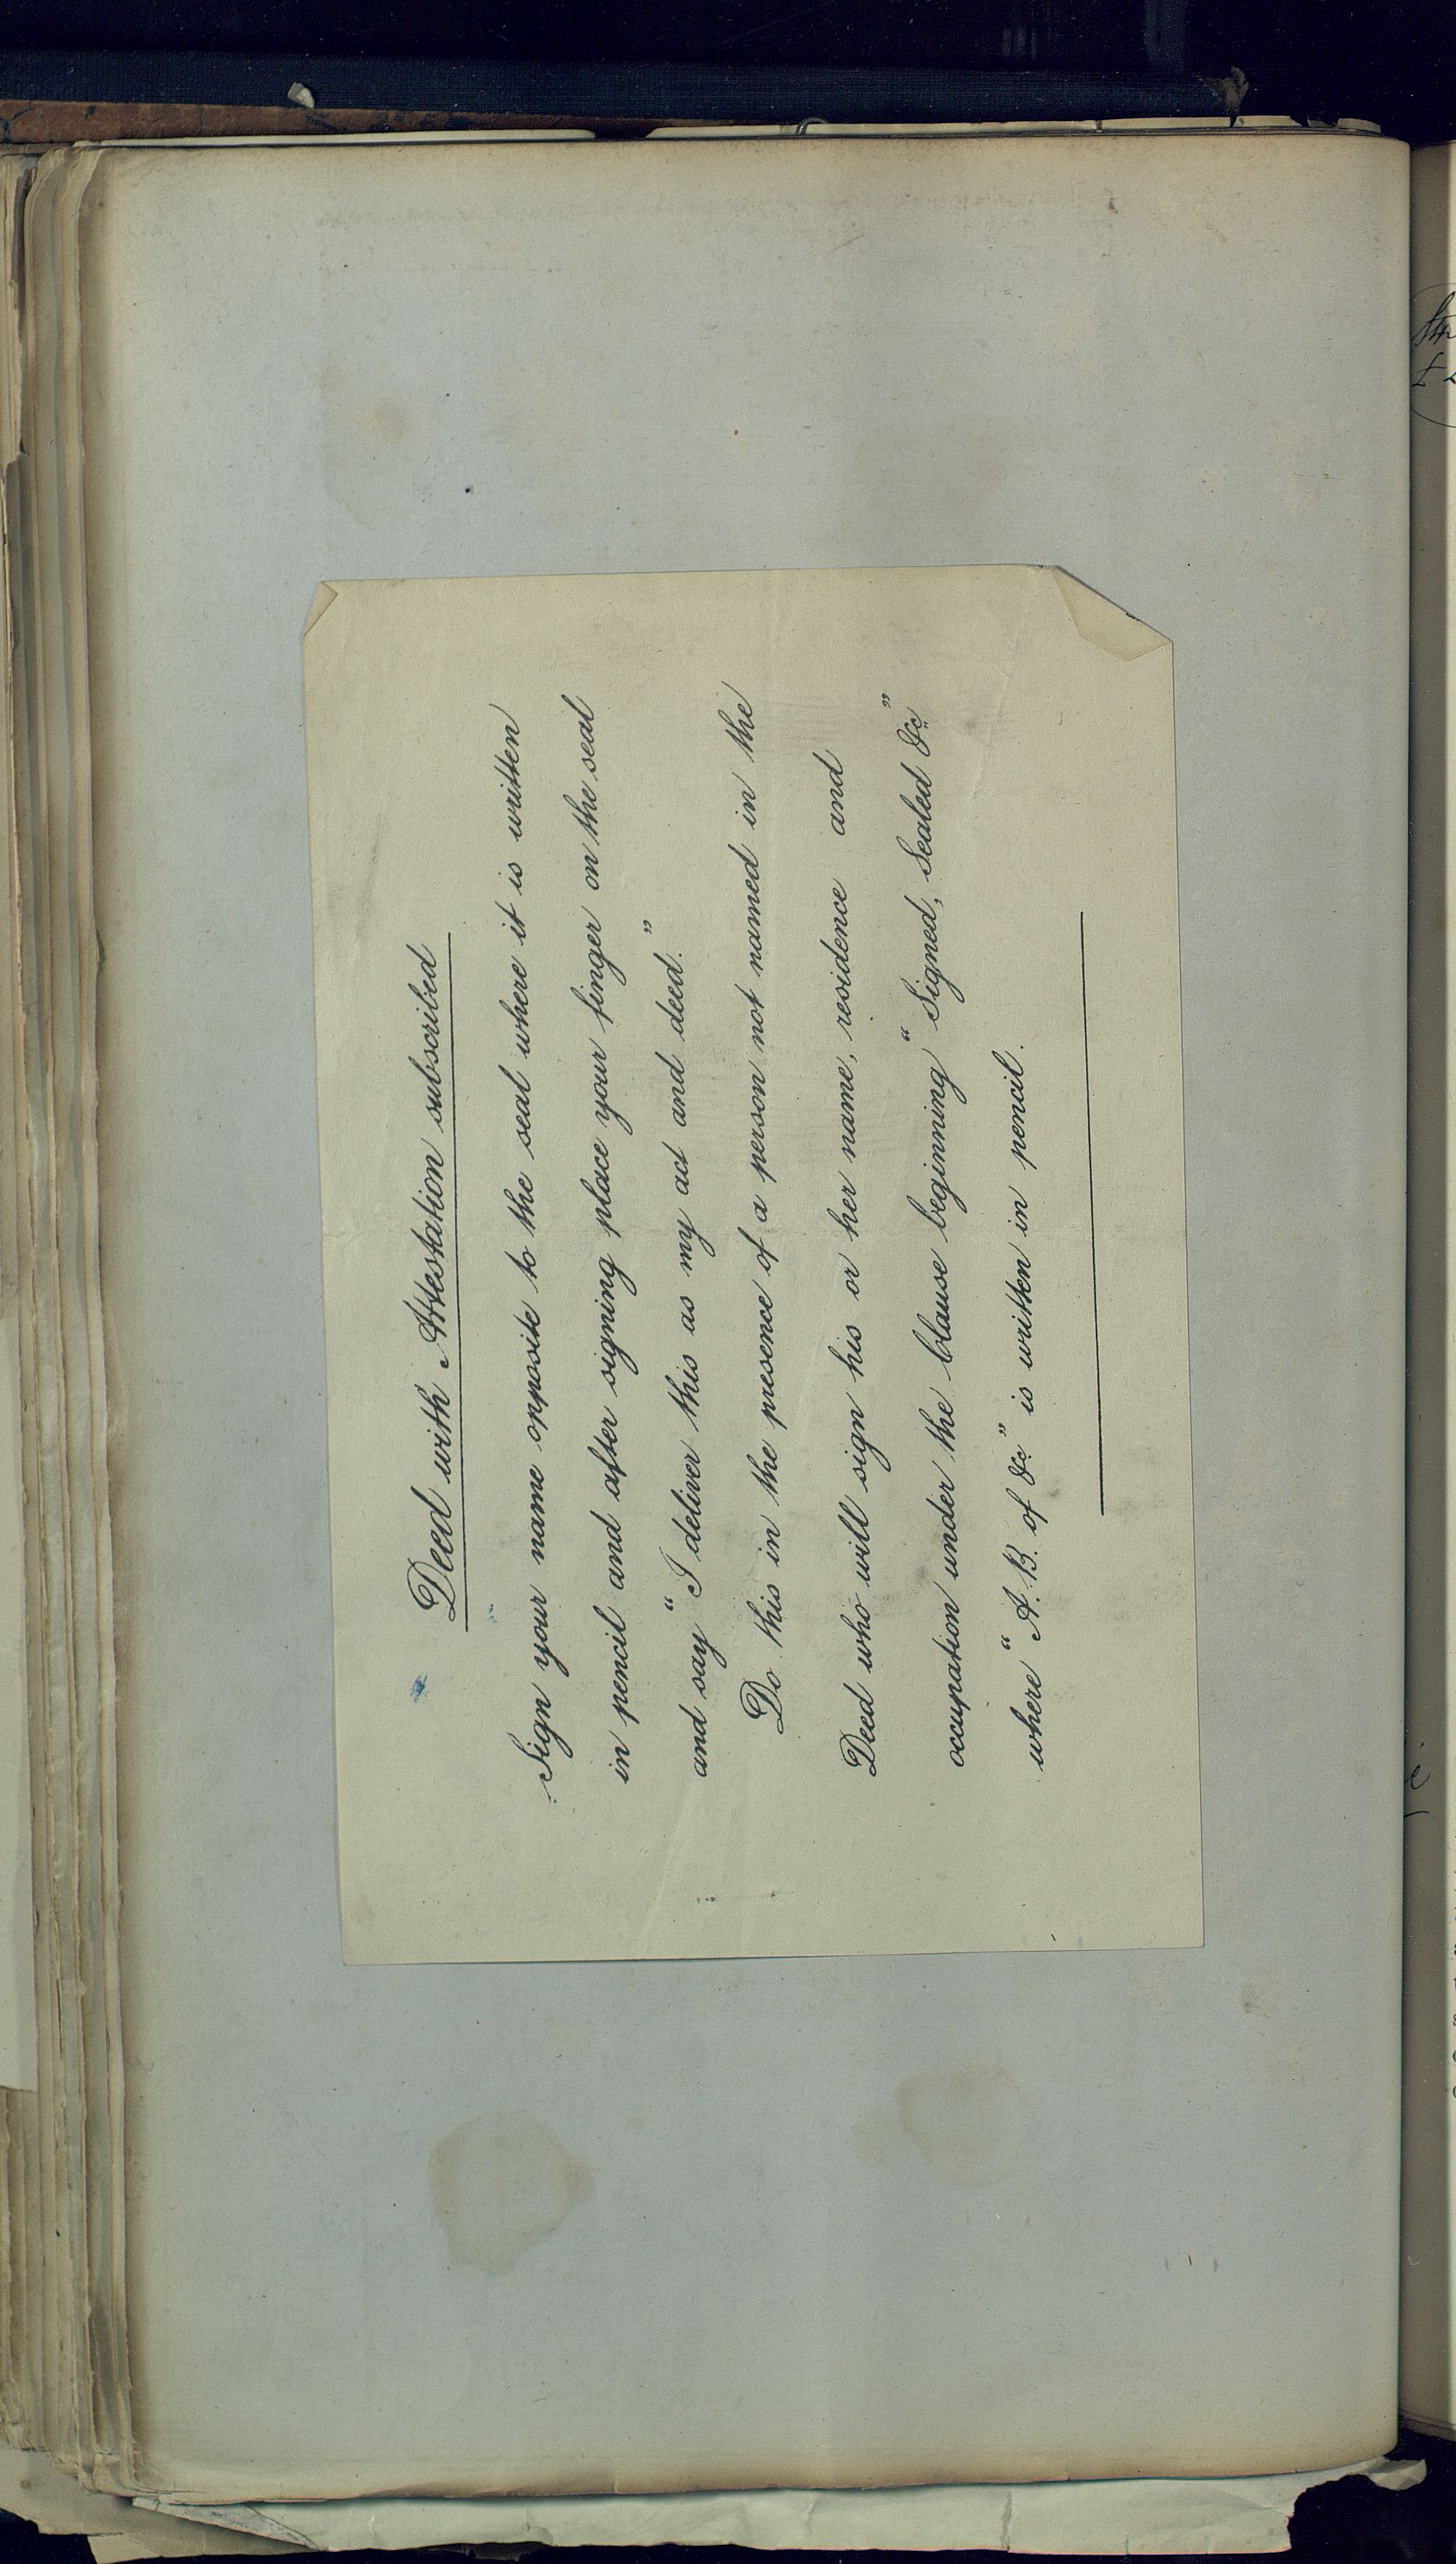 Deed with Attestation subscribed
Sign your name opposite to the seal where it is written
in pencil and after signing place your finger on the seal
and say "I deliver this as my act and deed."
Do this in the presence of a person not named in the
Deed who will sign his or her name, residence and
occupation under the Clause beginning "Signed, Sealed &c"
where "A. B. of &c" is written in pencil.